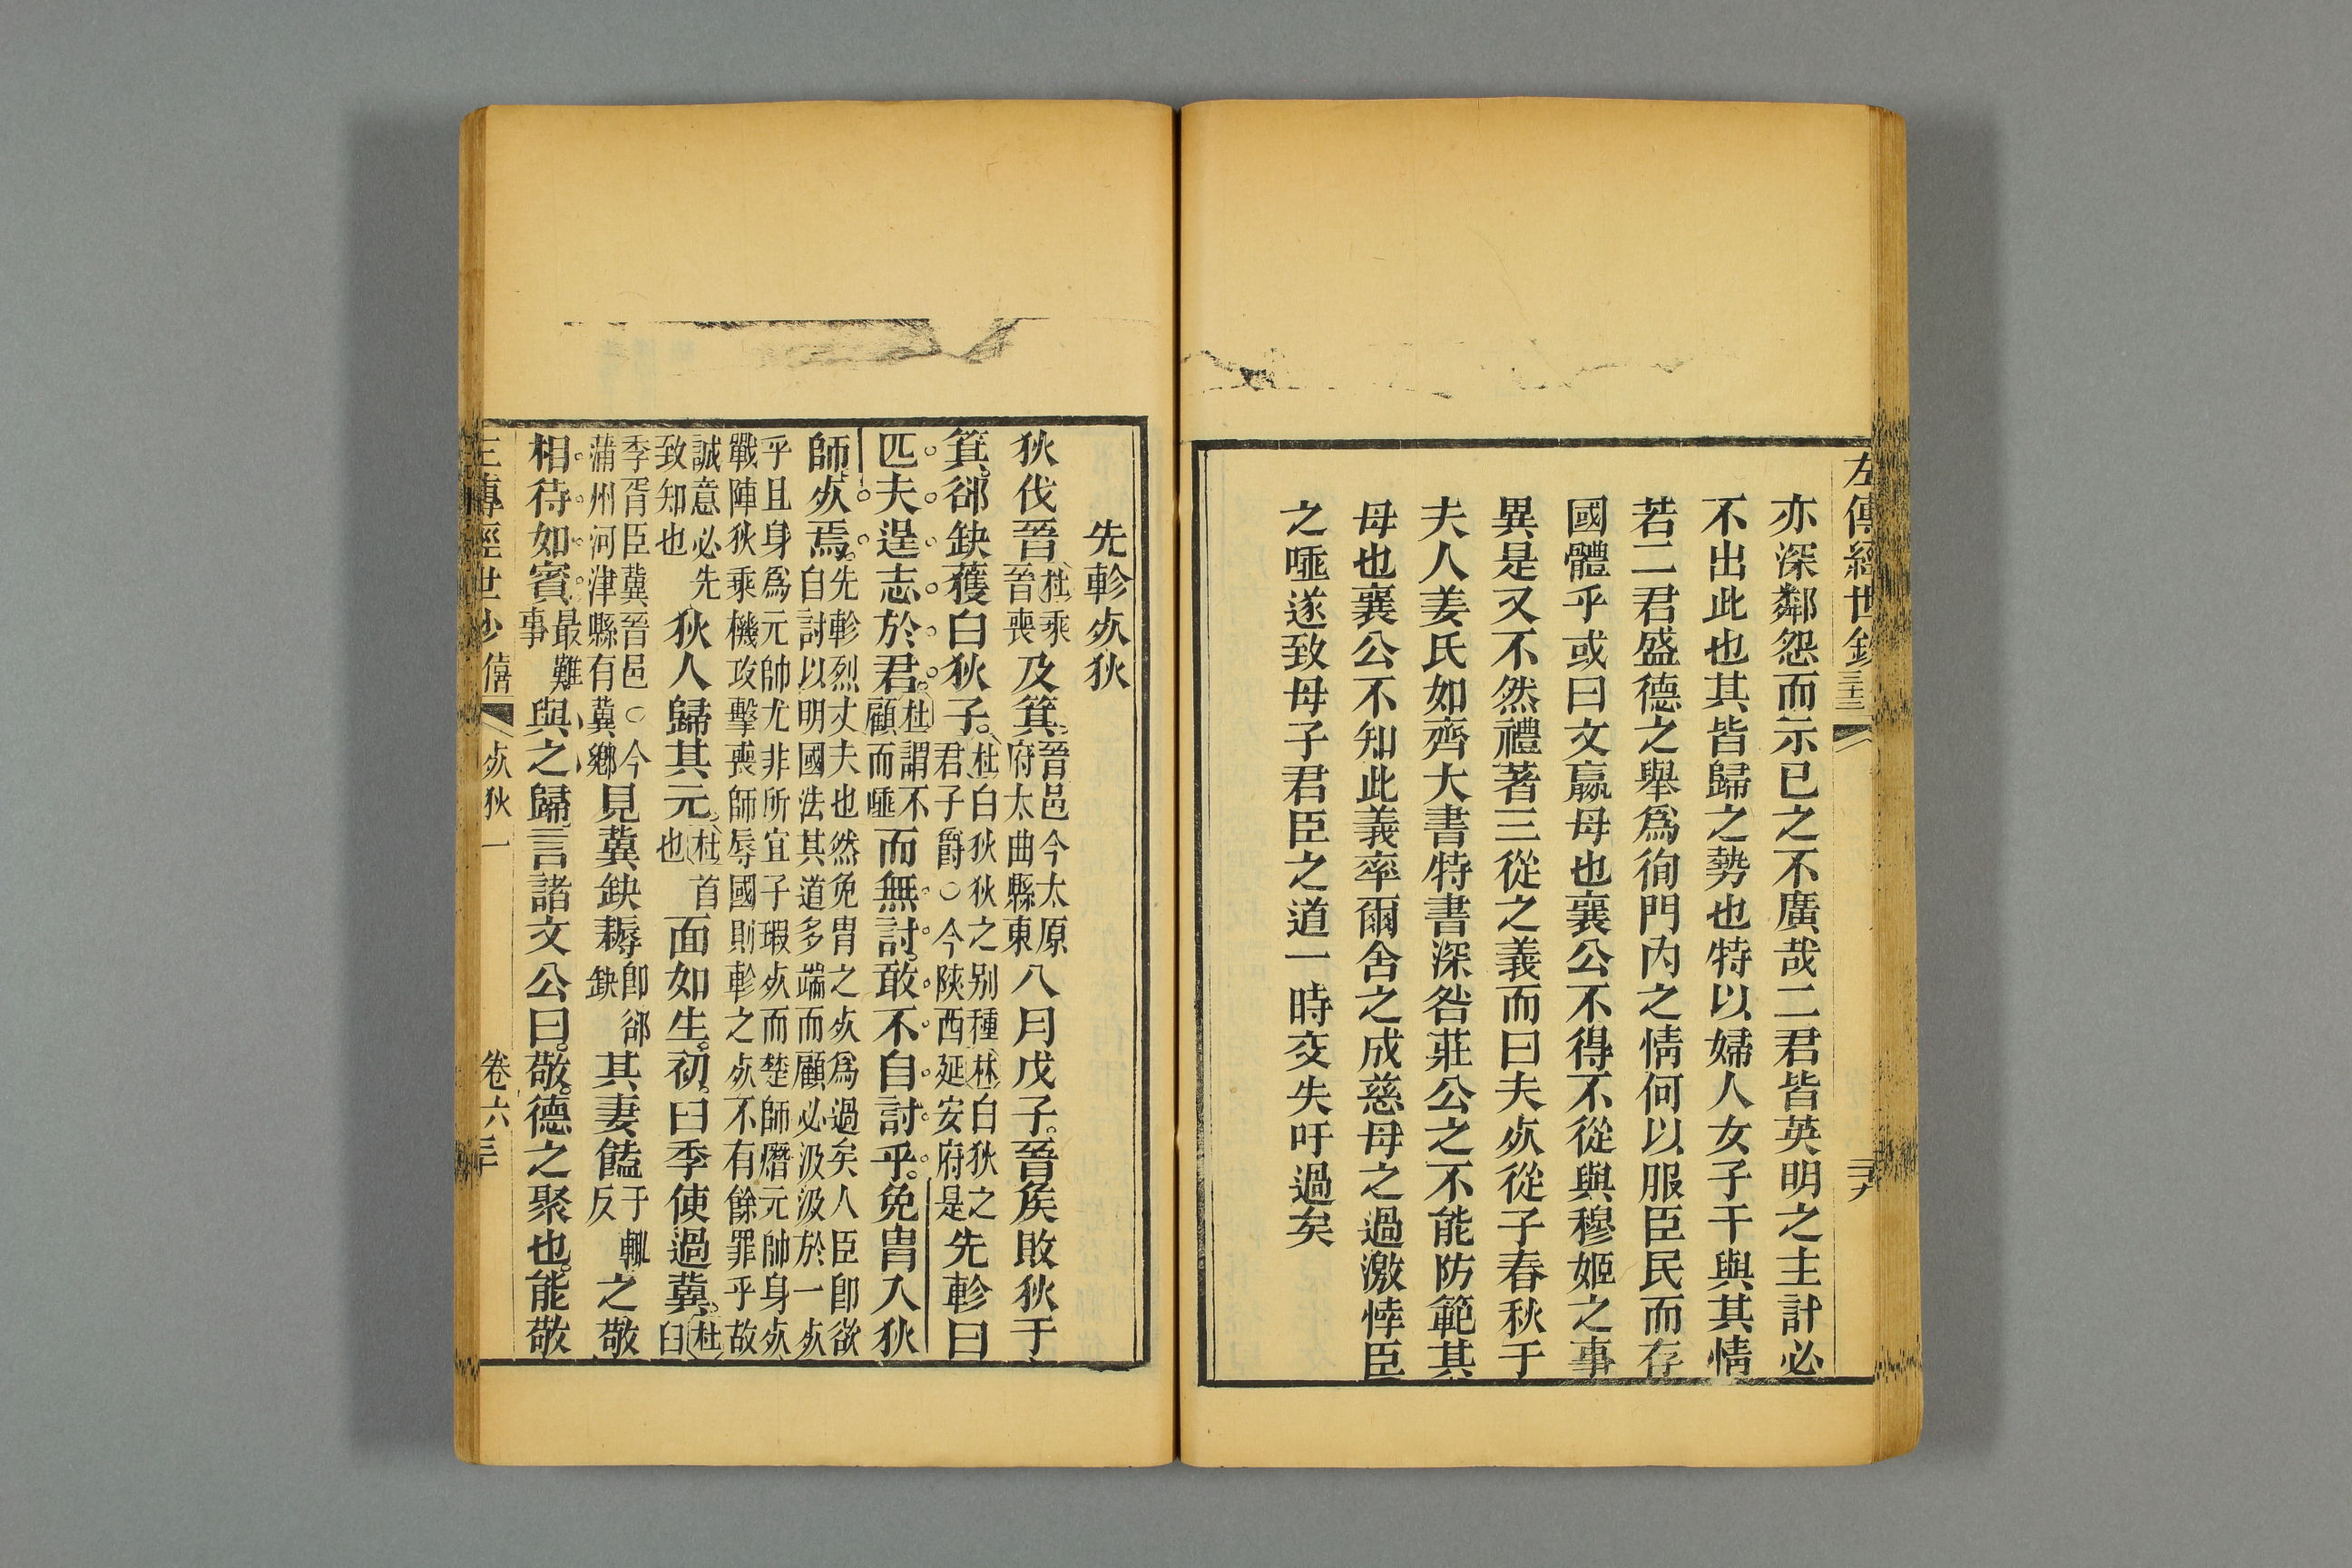 左傳經世鈔
亦深鄰怨而示已之不廣哉二君皆英明之主計必
不出此也其皆歸之勢也特以婦人女子干與其情
若二君盛德之舉爲徇門內之情何以服臣民而存
國體乎或曰文嬴母也襄公不得不從與穆姬之事
異是又不然禮著三從之義而曰夫歿從子春秋于
夫人姜氏如齊大書特書深咎莊公之不能防範其
母也襄公不知此義率爾舍之成慈母之過激悻臣
之唾遂致母子君臣之道一時交失吁過矣
先軫歿狄
狄伐晉杜乘晉喪及箕晉邑今太原府太曲縣東八月戊子晉侯敗狄于
箕郤缺獲白狄子杜白狄狄之別種林白狄之君子爵〇今陝西延安府是先軫曰
匹夫逞志於君杜謂不顧而唾而無討敢不自討乎免冑入狄
師歿焉先軫烈丈夫也然免冑之歿爲過矣人臣卽欲自討以明國法其道多端而顧必汲汲於一歿
乎且身爲元帥尤非所宜子瑕歿而楚師熸元帥身歿戰陣狄乘機攻擊喪師辱國則軫之歿不有餘罪乎故
誠意必先致知也狄人歸其元杜首也面如生初曰季使過冀杜臼
季胥臣冀晉邑〇今蒲州河津縣有冀鄉見冀缺耨卽郤缺其妻饁于輒反之敬
相待如賓最難事與之歸言諸文公曰敬德之聚也能敬
左傳經世鈔 僖 歿狄 一 卷六